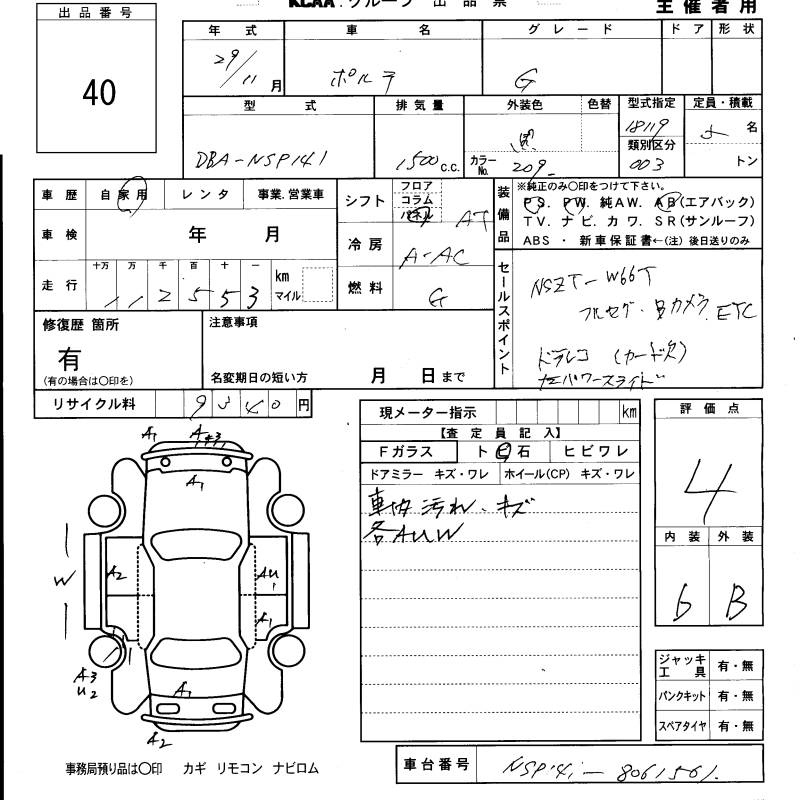 出品番号
40
KCAA.グループ 出品票
主催者用
年式 車名 グレード ドア 形状
29/11月 ポルテ G
型式 排気量 外装色 色替 型式指定 定員・積載
DBA-NSP141 1500c.c. 黒 18119 5名
カラーNo. 209 類別区分 003 トン
車歴 自家用 レンタ 事業.営業車
車検 年 月
走行 十万 万 千 百 十 一
112553 km マイル
シフト フロア コラム パネル AT
冷房 A-AC
燃料 G
装備品
※純正のみ〇印をつけて下さい。
PS. PW. 純AW. AB(エアバック)
TV. ナビ. カワ. SR(サンルーフ)
ABS ・ 新車保証書←(注) 後日送りのみ
セールスポイント
NSZT-W66T
フルセグ・Bカメラ ETC
ドラレコ (カード欠)
左パワースライド
修復歴 箇所
有
(有の場合は〇印を)
注意事項
名変期日の短い方 月 日まで
リサイクル料 9540円
現メーター指示 km
【査定員記入】
Fガラス ト ビ 石 ヒビワレ
ドアミラー キズ・ワレ ホイール(CP) キズ・ワレ
車内汚れ、キズ
各AUW
評価点
4
内装 外装
6 B
A1 A1
A1
W A2 AU1
A1
A3
U2
A1
A2
ジャッキ工具 有・無
パンクキット 有・無
スペアタイヤ 有・無
事務局預り品は〇印 カギ リモコン ナビロム
車台番号 NSP141-8061561